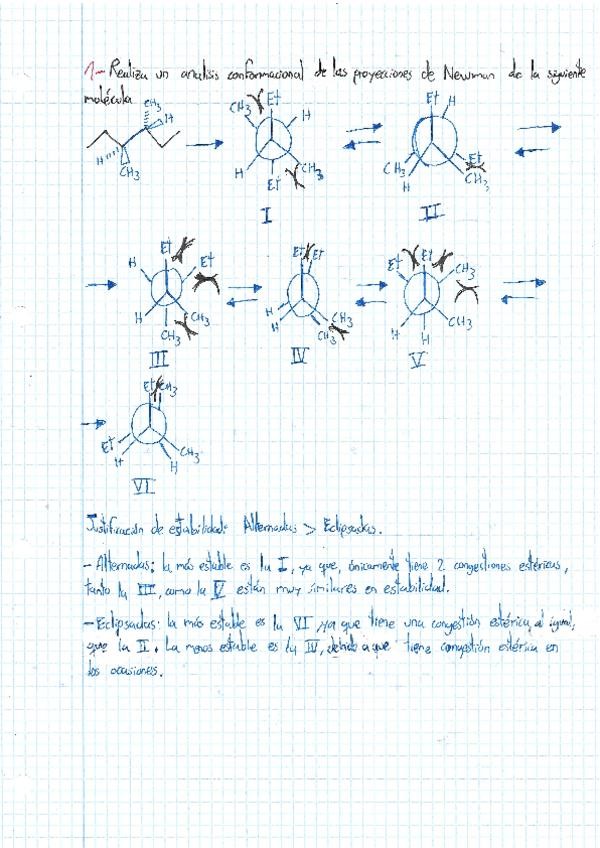 1- Realiza un analisis conformacional de las proyecciones de Newman de la siguiente
molécula
CH3 H H CH3
CH3 Et H H Et CH3
Et H CH3 H Et CH3
I II
H Et Et H CH3 CH3
Et Et H H CH3 CH3
Et Et CH3 H H CH3
III IV V
Et CH3 Et H H CH3
VI
Justificación de estabilidad: Alternadas > Eclipsadas.
- Alternadas: la más estable es la I, ya que, únicamente tiene 2 congestiones estéricas,
tanto la III, como la V están muy similares en estabilidad.
- Eclipsadas: la más estable es la VI, ya que tiene una congestión estérica, al igual,
que la II. La menos estable es la IV, debido a que tiene congestión estérica en
dos ocasiones.